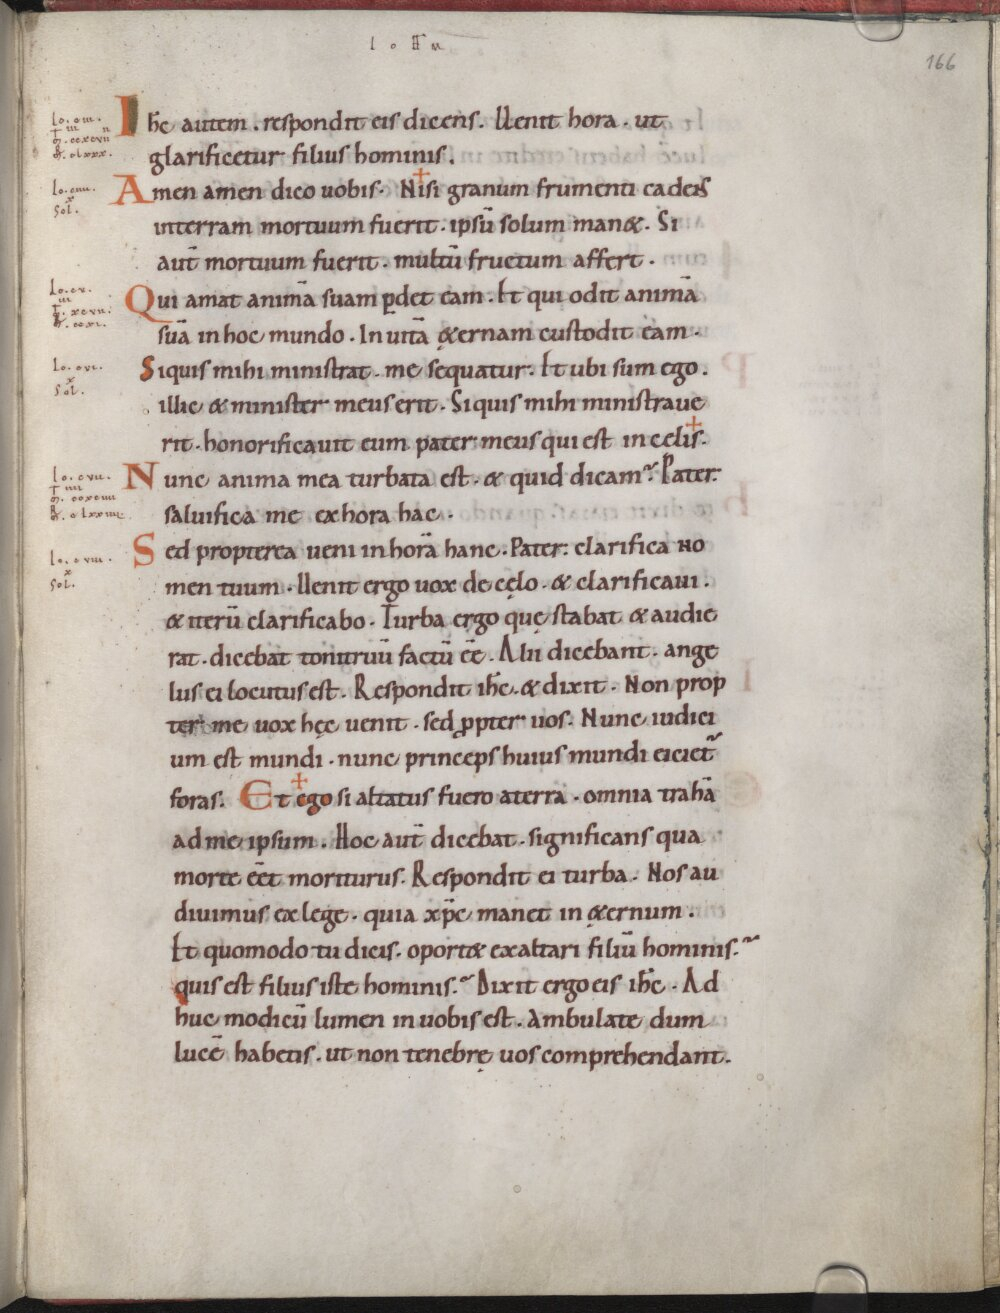 166
Ihc̄ autem . respondit eis dicens . Uenit hora . ut
glarificetur filius hominis .
Amen amen dico uobis . Nisi granum frumenti cadens
interram mortuum fuerit . ipsū solum man& . Si
aut̄ mortuum fuerit . multū fructum affert .
Qui amat animā suam ꝑdet eam . Et qui odit animā
suā in hoc mundo . In uitā &ernam custodit eam .
Siquis mihi ministrat . me sequatur . Et ubi sum ego .
illic & minister meus erit . Siquis mihi ministraue
rit . honorificauit eum pater meus qui est in cęlis .
Nunc anima mea turbata est . & quid dicam? Pater
saluifica me exhora hac .
Sed propterea ueni in horā hanc . Pater : clarifica no
men tuum . Uenit ergo uox de cęlo . & clarificaui .
& iterū clarificabo . Turba ergo quę stabat & audie
rat . dicebat tonitruū factū eē . Alii dicebant . ange
lus ei locutus est . Respondit ihc̄ . & dixit . Non prop
ter me uox hęc uenit . sed ꝓpter uos . Nunc iudici
um est mundi . nunc princeps huius mundi eiciet᷑
foras . Et ego si altatus fuero aterra . omnia trahā
ad me ipsum . Hoc aut̄ dicebat . significans qua
morte eēt moriturus . Respondit ei turba . Nos au
diuimus ex lege . quia xp̄c manet in &ernum .
Et quomodo tu dicis . oport& exaltari filiū hominis ?
quis est filius iste hominis ? Dixit ergo eis ihc̄ . Ad
huc modicū lumen in uobis est . Ambulate dum
lucē habetis . ut non tenebrę uos comprehendant .